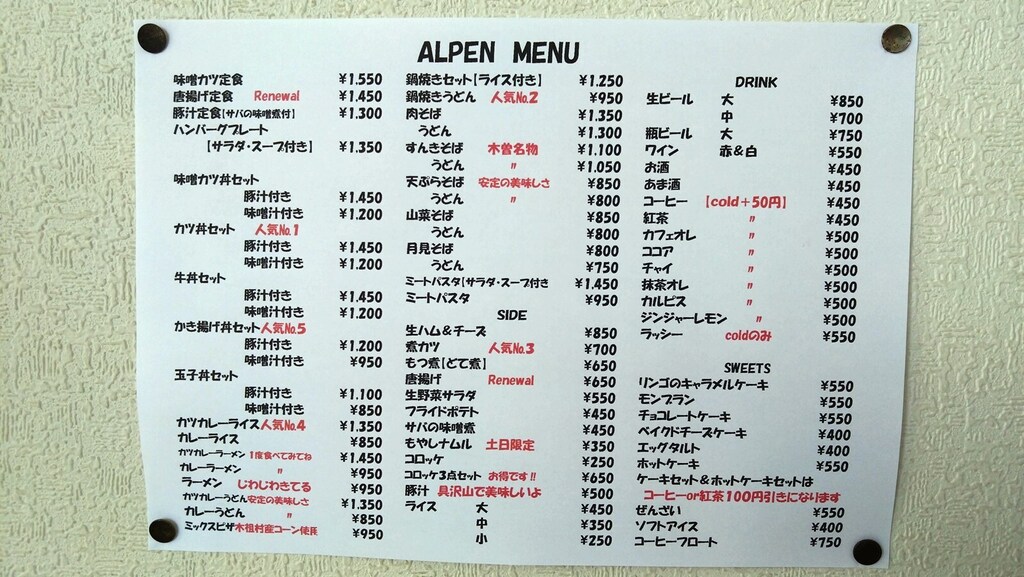 ALPEN MENU
味噌カツ定食 ¥1.550
唐揚げ定食 Renewal ¥1.450
豚汁定食[サバの味噌煮付] ¥1.300
ハンバーグプレート
[サラダ・スープ付き] ¥1.350
味噌カツ丼セット
豚汁付き ¥1.450
味噌汁付き ¥1.200
カツ丼セット 人気No.1
豚汁付き ¥1.450
味噌汁付き ¥1.200
牛丼セット
豚汁付き ¥1.450
味噌汁付き ¥1.200
かき揚げ丼セット人気No.5
豚汁付き ¥1.200
味噌汁付き ¥950
玉子丼セット
豚汁付き ¥1.100
味噌汁付き ¥850
カツカレーライス人気No.4 ¥1.350
カレーライス ¥850
カツカレーラーメン 1度食べてみてね ¥1.450
カレーラーメン 〃 ¥950
ラーメン じわじわきてる ¥950
カツカレーうどん安定の美味しさ ¥1.350
カレーうどん 〃 ¥850
ミックスピザ木祖村産コーン使用 ¥950
鍋焼きセット[ライス付き] ¥1.250
鍋焼きうどん 人気No.2 ¥950
肉そば ¥1.350
うどん ¥1.300
すんきそば 木曽名物 ¥1.100
うどん 〃 ¥1.050
天ぷらそば 安定の美味しさ ¥850
うどん 〃 ¥800
山菜そば ¥850
うどん ¥800
月見そば ¥800
うどん ¥750
ミートパスタ[サラダ・スープ付き ¥1.450
ミートパスタ ¥950
SIDE
生ハム&チーズ ¥850
煮カツ 人気No.3 ¥700
もつ煮[どて煮] ¥650
唐揚げ Renewal ¥650
生野菜サラダ ¥550
フライドポテト ¥450
サバの味噌煮 ¥450
もやしナムル 土日限定 ¥350
コロッケ ¥250
コロッケ3点セット お得です!! ¥650
豚汁 具沢山で美味しいよ ¥500
ライス 大 ¥450
中 ¥350
小 ¥250
DRINK
生ビール 大 ¥850
中 ¥700
瓶ビール 大 ¥750
ワイン 赤&白 ¥550
お酒 ¥450
あま酒 ¥450
コーヒー [cold+50円] ¥450
紅茶 〃 ¥450
カフェオレ 〃 ¥500
ココア 〃 ¥500
チャイ 〃 ¥500
抹茶オレ 〃 ¥500
カルピス 〃 ¥500
ジンジャーレモン 〃 ¥500
ラッシー coldのみ ¥550
SWEETS
リンゴのキャラメルケーキ ¥550
モンブラン ¥550
チョコレートケーキ ¥550
ベイクドチーズケーキ ¥400
エッグタルト ¥400
ホットケーキ ¥550
ケーキセット&ホットケーキセットは
コーヒーor紅茶100円引きになります
ぜんざい ¥550
ソフトアイス ¥400
コーヒーフロート ¥750